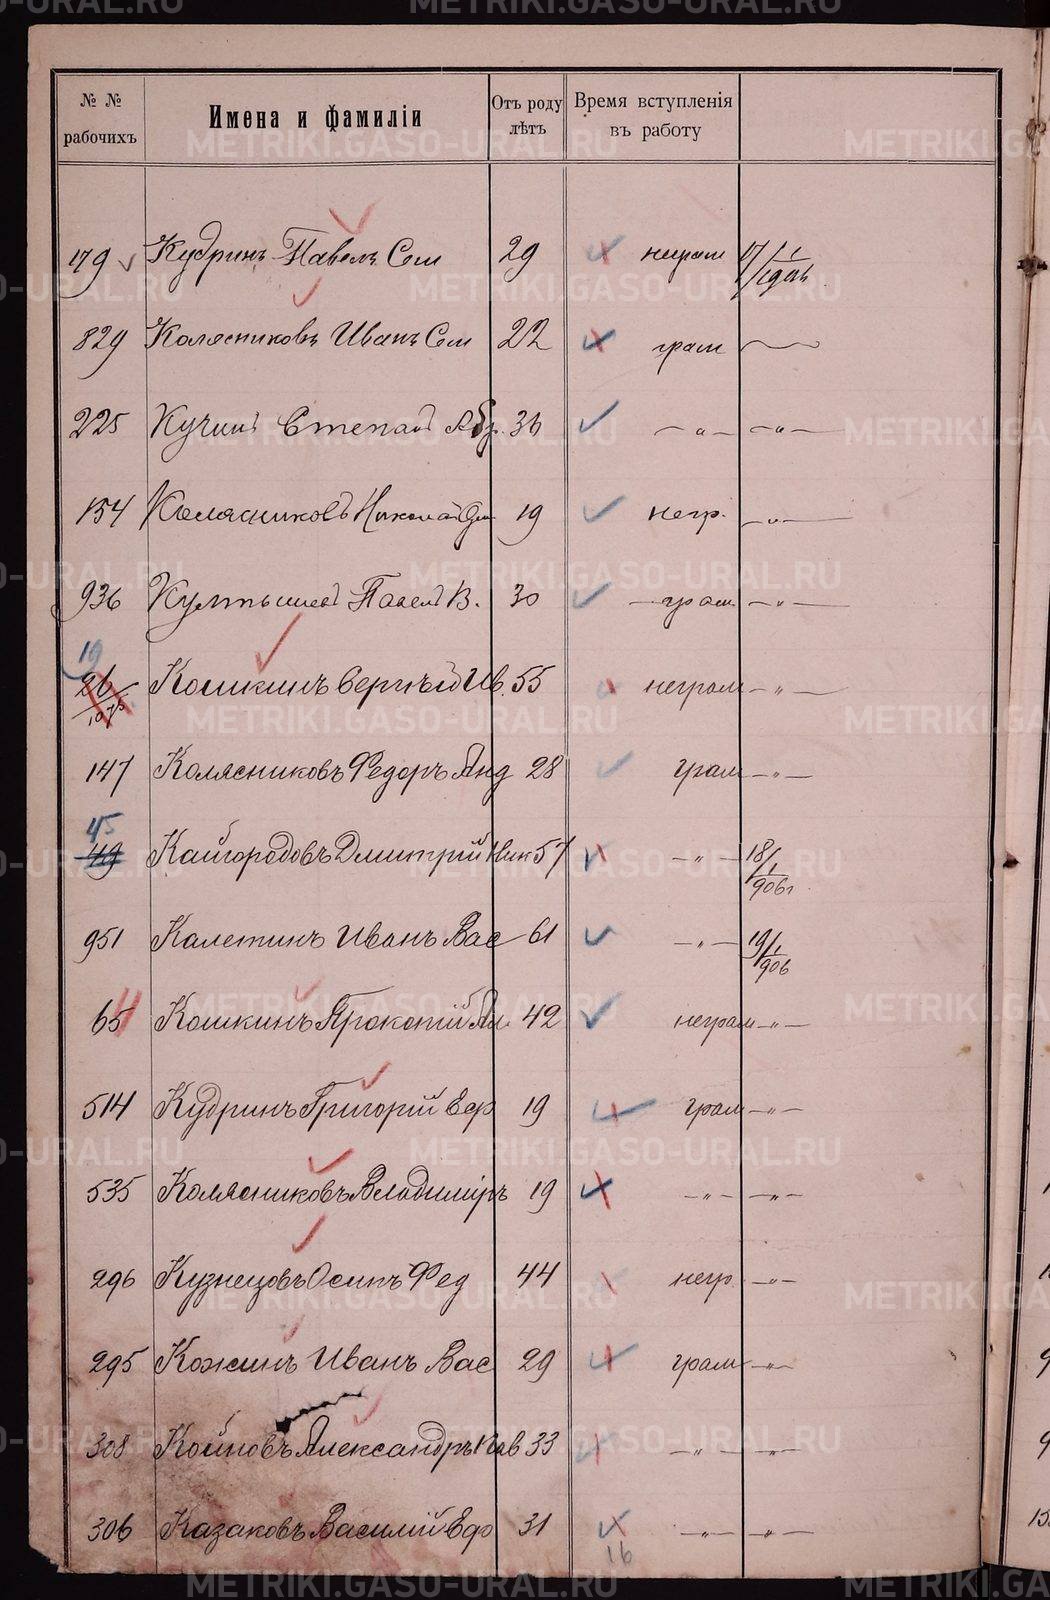 № № рабочихъ Имена и фамиліи Отъ роду лѣтъ Время вступленія въ работу
179 Кудринъ Павелъ Сем 29 неграм 17/1 1906
829 Колясниковъ Иванъ Сем 22 грам
225 Кучинъ Степанъ Абр. 36 — „ — — „ —
154 Колясниковъ Николай 19 негр. — „ —
936 Култышевъ Павелъ В. 30 грам — „ —
19
26/1075 Кошкинъ Сергѣй Ив. 55 неграм — „ —
147 Колясниковъ Федоръ Анд 28 грам — „ —
45
49 Кайгородовъ Дмитрій Ник 57 — „ — 18/1 906 г
951 Калетинъ Иванъ Вас 61 — „ — 19/1 906
65 Кошкинъ Прокопій Ал. 42 неграм — „ —
514 Кудринъ Григорій Еф 19 грам — „ —
535 Колясниковъ Владиміръ 19 — „ — — „ —
296 Кузнецовъ Осипъ Фед 44 негр — „ —
295 Кожинъ Иванъ Вас 29 грам — „ —
308 Койновъ Александръ Пав 33 — „ — — „ —
306 Казаковъ Василій Еф 31 — „ — — „ —
16
METRIKI.GASO-URAL.RU